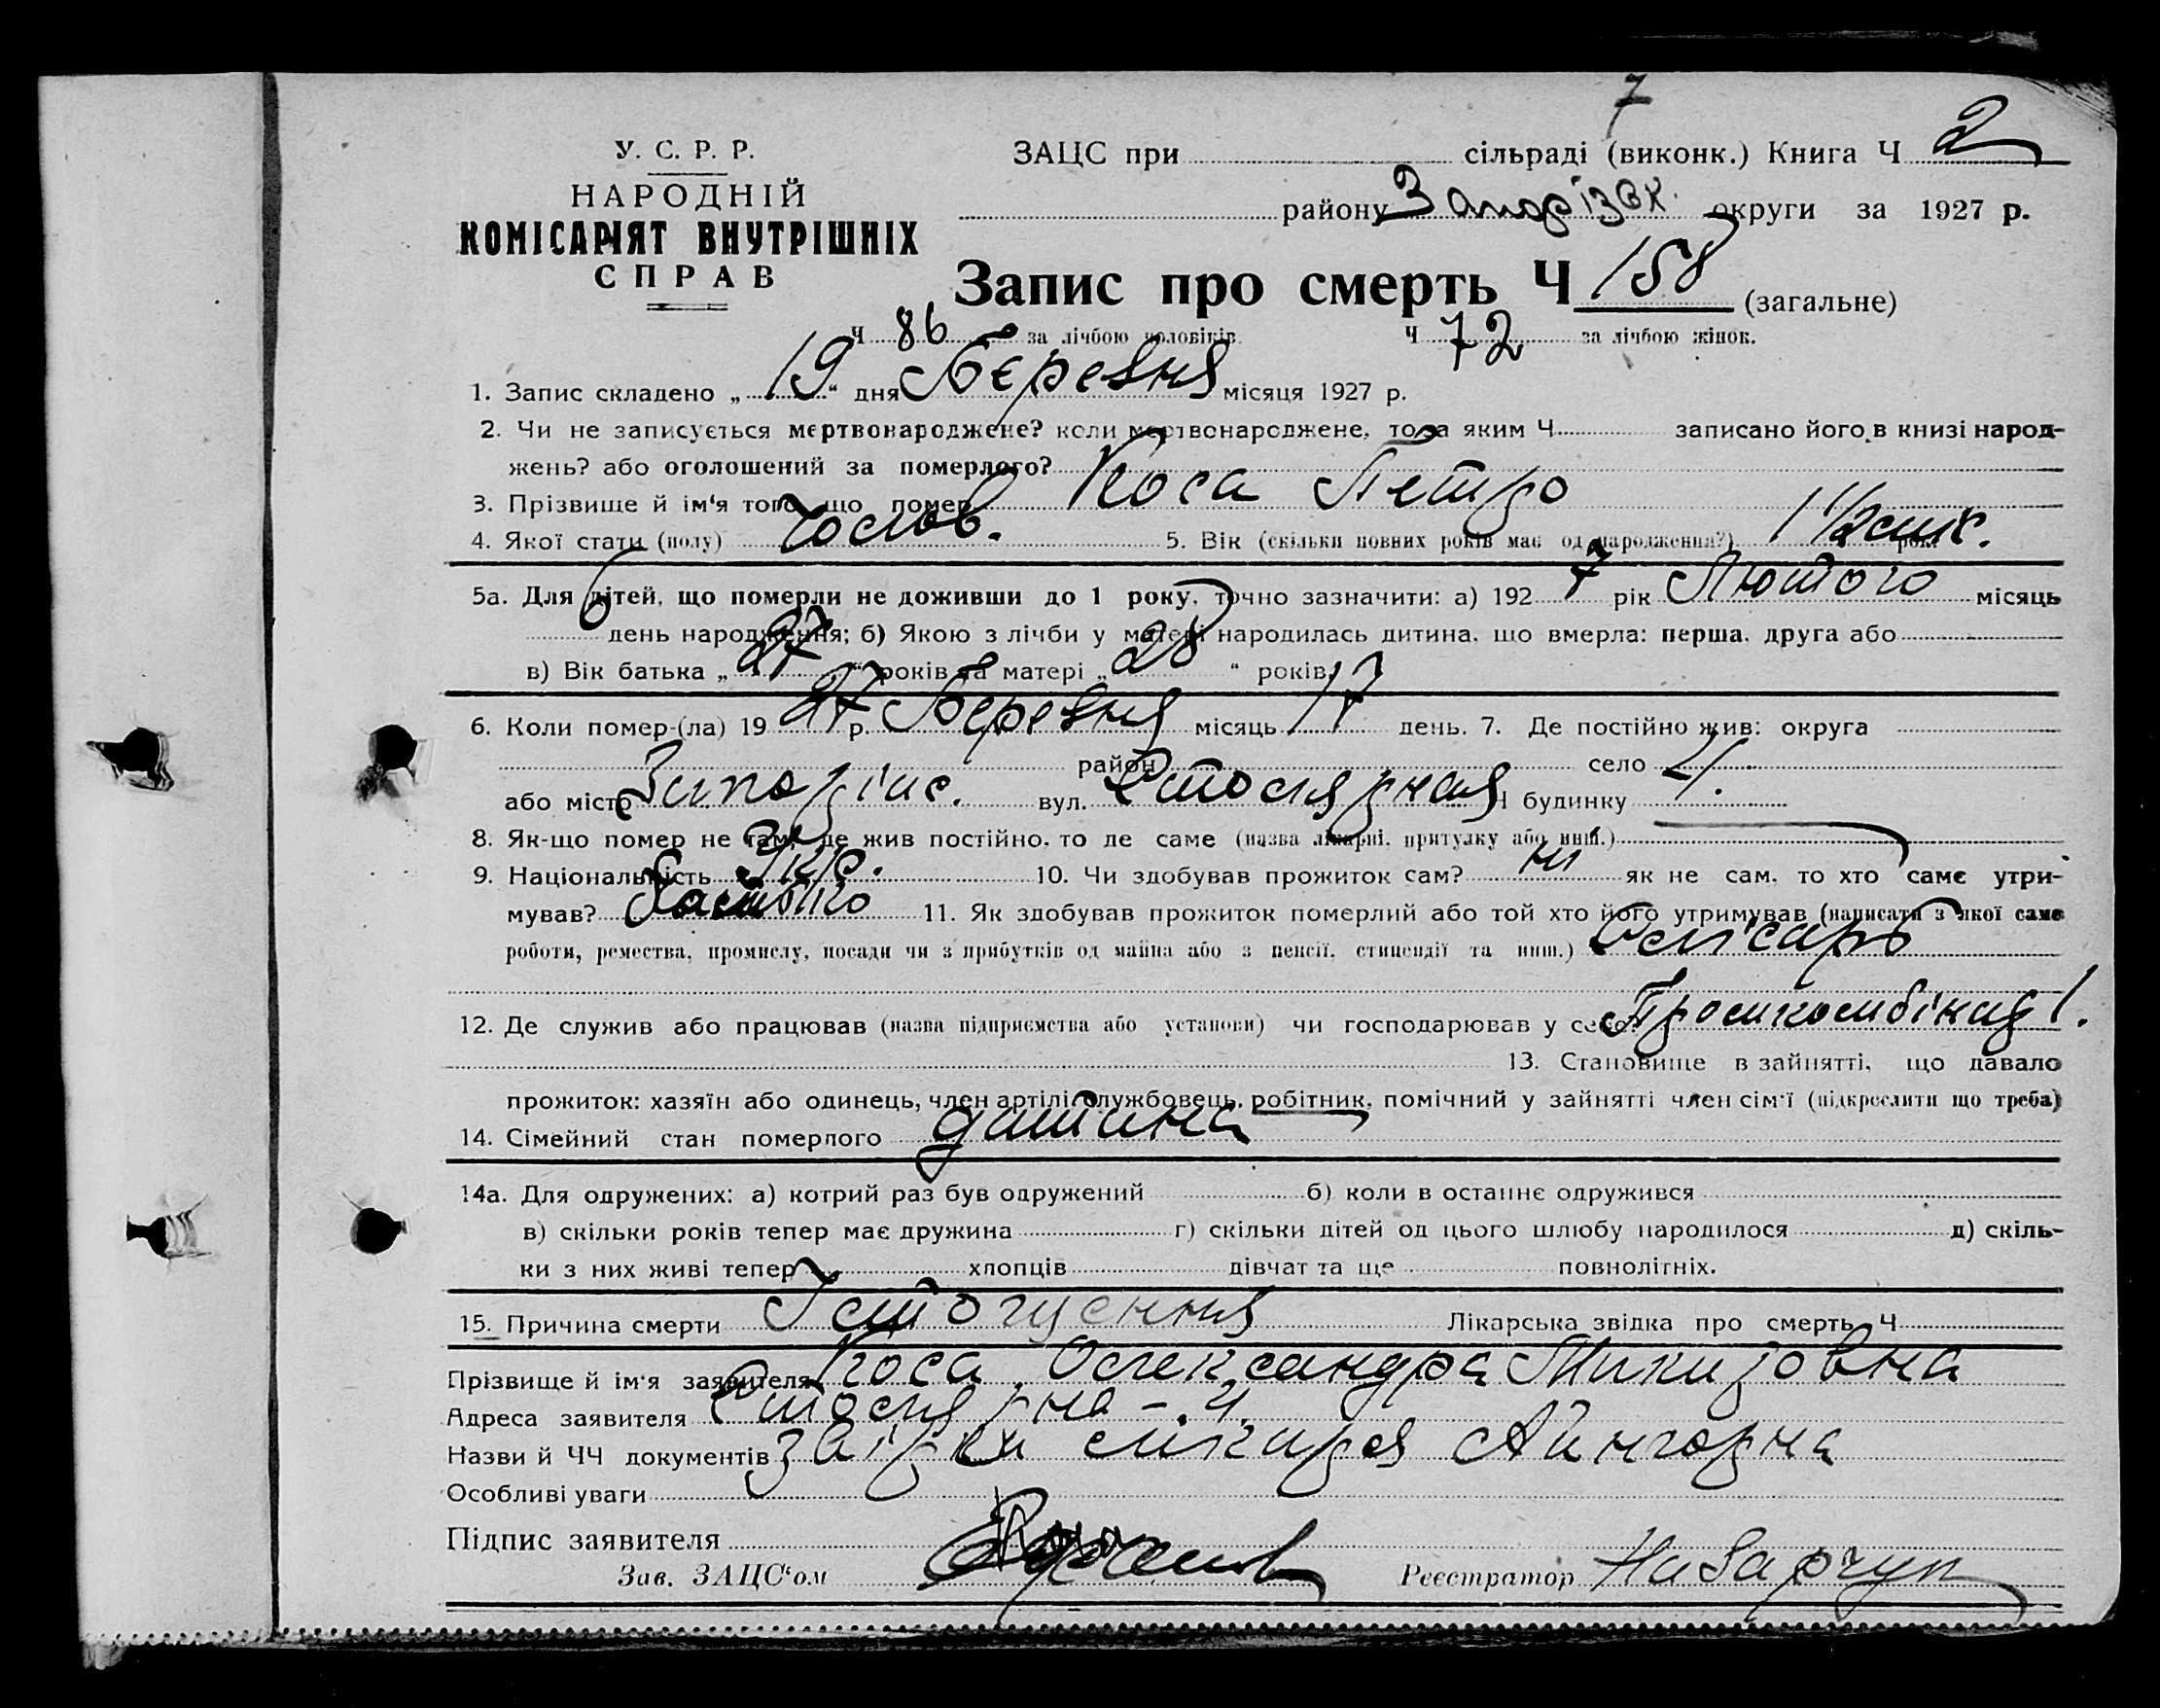 7
У. С. Р. Р.
НАРОДНІЙ
КОМІСАРІЯТ ВНУТРІШНІХ
СПРАВ
ЗАЦС при сільраді (виконк.) Книга Ч 2
району Запорізьк. округи за 1927 р.
Запис про смерть Ч 158 (загальне)
Ч 86 за лічбою чоловіків Ч 72 за лічбою жінок.
1. Запис складено „ 19 “ дня Березня місяця 1927 р.
2. Чи не записується мертвонароджене? коли мертвонароджене, то за яким Ч записано його в книзі народ-
жень? або оголошений за померлого?
3. Прізвище й ім‘я того, що помер Коса Петро
4. Якої стати (полу) Чолов. 5. Вік (скільки повних років має од народження?) 1 1/2 міс. рок.
5а. Для дітей, що померли не доживши до 1 року, точно зазначити: а) 192 7 рік Лютого місяць
6 день народження; б) Якою з лічби у матері народилась дитина, що вмерла: перша, друга або
в) Вік батька „ 27 “ років та матері „ 28 “ років
6. Коли помер-(ла) 19 27 р. Березня місяць 17 день. 7. Де постійно жив: округа
район село
або місто Запоріжс. вул. Столярная Ч будинку 4.
8. Як-що помер не там, де жив постійно, то де саме (назва лікарні, притулку або инш.)
9. Національність Укр. 10. Чи здобував прожиток сам? ні як не сам, то хто саме утри-
мував? Батько 11. Як здобував прожиток померлий або той хто його утримував (написати з якої саме
роботи, ремества, промислу, посади чи з прибутків од майна або з пенсії, стипендії та инш.) Слюсарь
12. Де служив або працював (назва підприємства або установи) чи господарював у себе? Промкомбінат 1.
13. Становище в зайнятті, що давало
прожиток: хазяїн або одинець, член артілі, службовець, робітник, помічний у зайнятті член сім‘ї (підкреслити що треба)
14. Сімейний стан померлого дитина
14а. Для одружених: а) котрий раз був одружений б) коли в останнє одружився
в) скільки років тепер має дружина г) скільки дітей од цього шлюбу народилося д) скіль-
ки з них живі тепер хлопців дівчат та ще повнолітніх.
15. Причина смерти Істощення Лікарська звідка про смерть Ч
Прізвище й ім‘я заявителя Коса Олександра Макаровна
Адреса заявителя Столярна – 4.
Назви й ЧЧ документів лікаря
Особливі уваги
Підпис заявителя
Зав. ЗАЦС‘ом Реєстратор